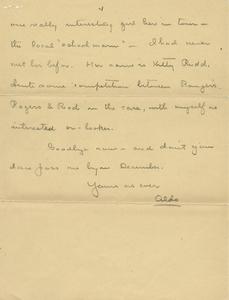 one really interesting girl here in town -
the local "school marm" - I had never
met her before. Her name is Kitty Rudd.
some competition between Ranger
Rogers & Rood in the case, with myself as
interested on-looker.
Goodbye now - and don't you
dare pass me by in December.
Yours as ever
Aldo